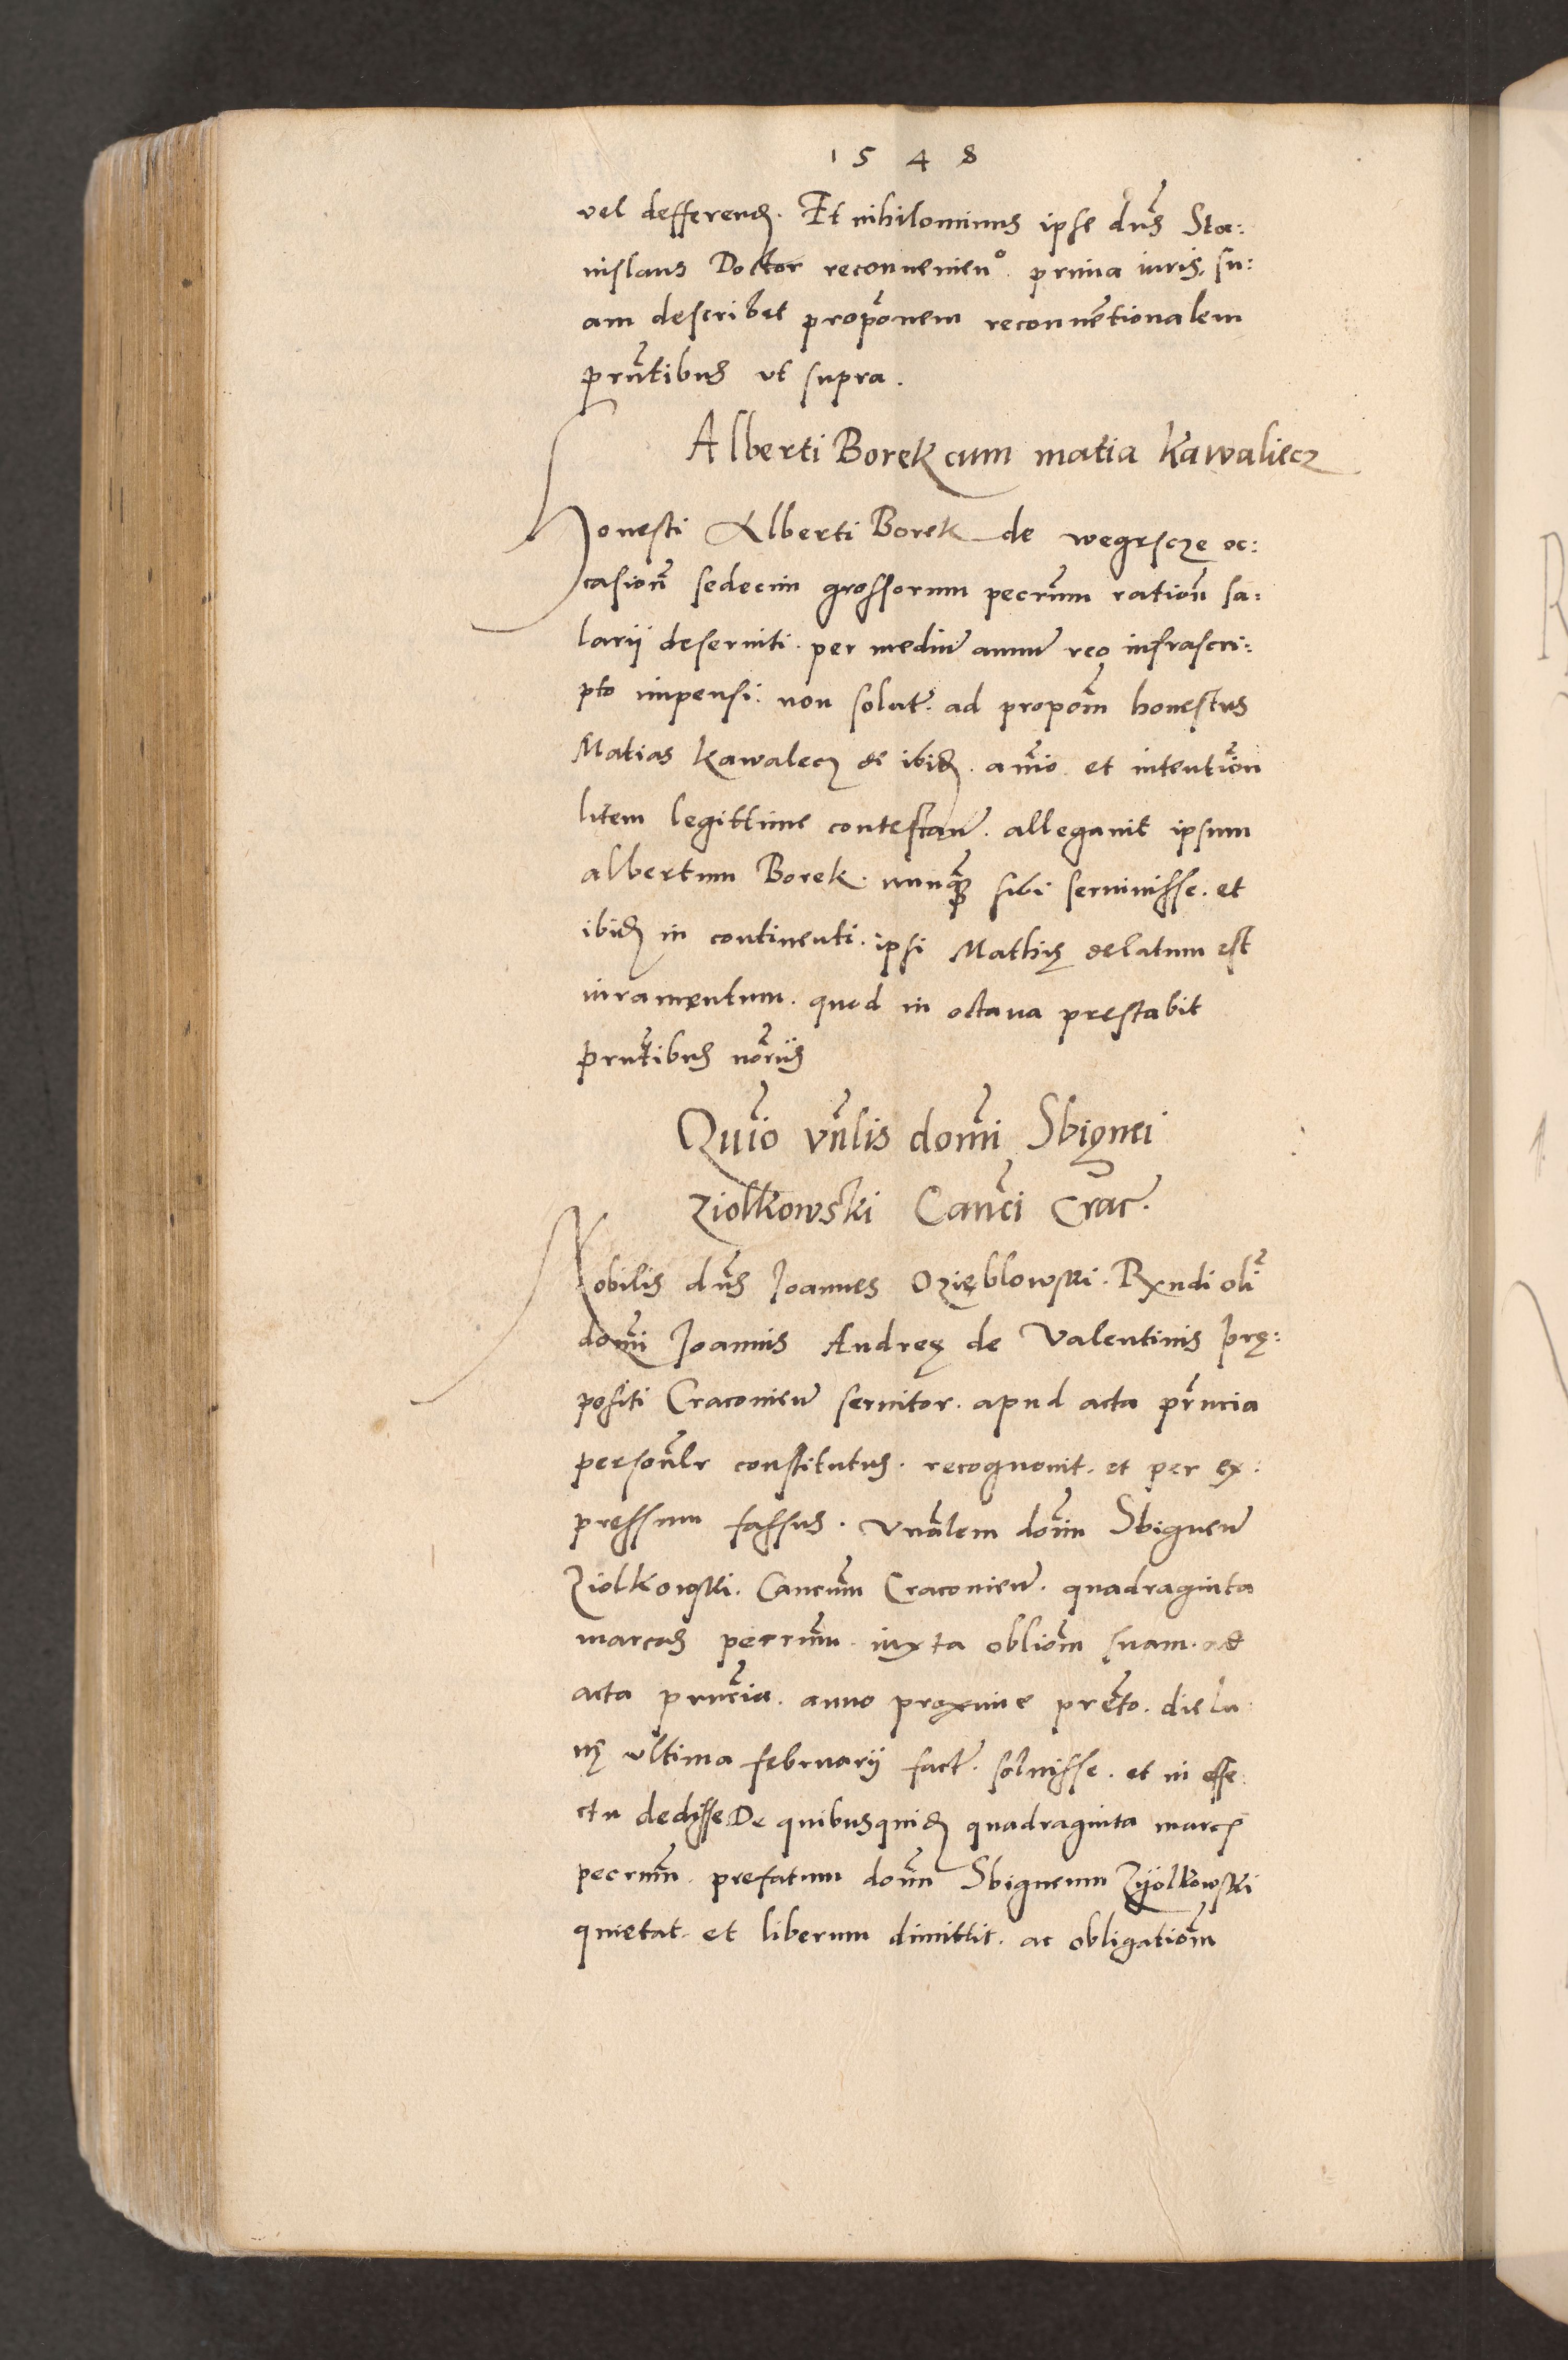 1548
vel defferend. Et nihilominus ipse dns Sta:
nislaus Doctor reconuenien° prima iuris su:
am describet propōnem reconuētionalem
prntibus ut supra.
Alberti Borek cum matia Kawaliecz
Honesti Alberti Borek de wegrscze oc:
casionē sedecim grossorum pecrum rationē sa:
larij deseruiti. per mediū annū reo infrascri:
pto impensi. non solut. ad propom̄ honestus
Matias Kawalecz de ibid. animo et intentiōn
litem legittime contestan. allegauit ipsum
albertum Borek. nunq̄ sibi seruiuisse. et
ibid in continenti. ipsi Mathię delatum est
iuramentum. quod in octaua prestabit
prntibus noriis
Quio vnlis domī Sbignei
Ziolkowski Canci Crac.
Nobilis dns Joannes Ozięblowski. Rxndi oli
domī Joannis Andreę de Valentinis prę:
positi Cracouien seruitor. apud acta prncia
personlr constitutus. recognouit. et per ex:
pressum fassus. vnalem dom̄ Sbigneū
Ziolkowski. Cancum Cracouien. quadraginta
marcas pecrum. iuxta obliom̄ suam. ad
acta prncia. anno proxime preto. die lu
nę vltima februarij fact. soluisse. et in effe
ctu dedisse De quibusquid quadraginta marcis
pecrum. prefatum dom̄ Sbigneum Zyolkowski
quietat. et liberum dimittit. ac obligatiom̄